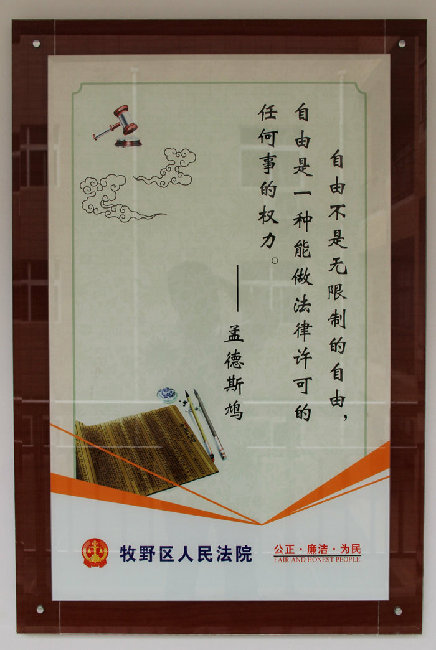 自由不是无限制的自由，
自由是一种能做法律许可的
任何事的权力。
——孟德斯鸠
牧野区人民法院
公正·廉洁·为民
FAIR AND HONEST PEOPLE